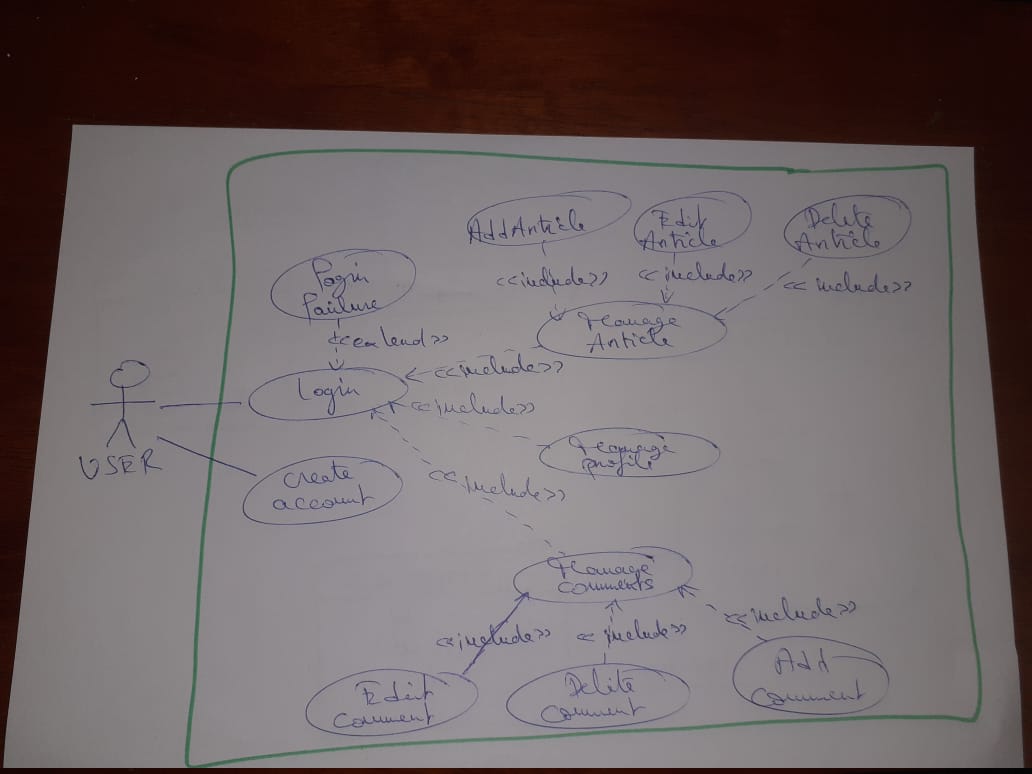 Add Article
Edit
Article
Delete
Article
<<include>>
<<include>>
<<include>>
Login
failure
<<extend>>
Manage
Article
<<include>>
Login
<<include>>
Manage
profile
USER
create
account
<<include>>
Manage
comments
<<include>>
<<include>>
<<include>>
Edit
comment
Delete
Comment
Add
comment